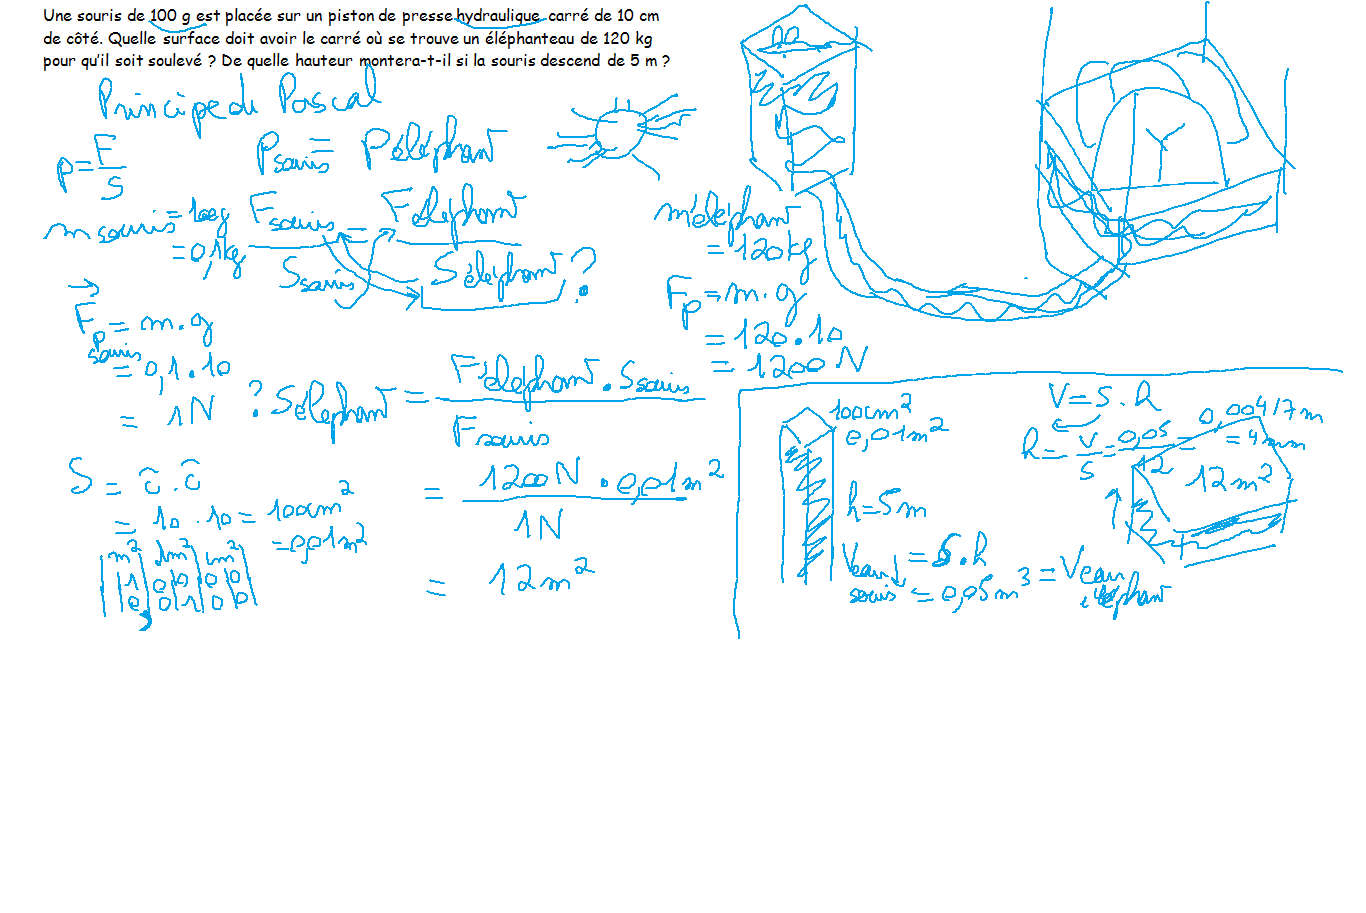 Une souris de 100 g est placée sur un piston de presse hydraulique carré de 10 cm
de côté. Quelle surface doit avoir le carré où se trouve un éléphanteau de 120 kg
pour qu'il soit soulevé ? De quelle hauteur montera-t-il si la souris descend de 5 m ?
Principe de Pascal
p = F / S
P souris = P éléphant
m souris = 100g
= 0,1kg
F souris / S souris = F éléphant / S éléphant ?
Fp souris = m.g
= 0,1.10
= 1N
m éléphant
= 120kg
Fp = m.g
= 120.10
= 1200 N
? S éléphant = F éléphant . S souris / F souris
= 1200N . 0,01m² / 1N
= 12m²
S = c . c
= 10 . 10 = 100cm²
= 0,01m²
m² dm² cm²
1 0 0 0 0
0 0 1 0 0
100cm²
0,01m²
h = 5m
V eau souris = S.h
= 0,05m³ = V eau éléphant
V = S . h
h = V / S = 0,05 / 12 = 0,00417m
= 4mm
12m²